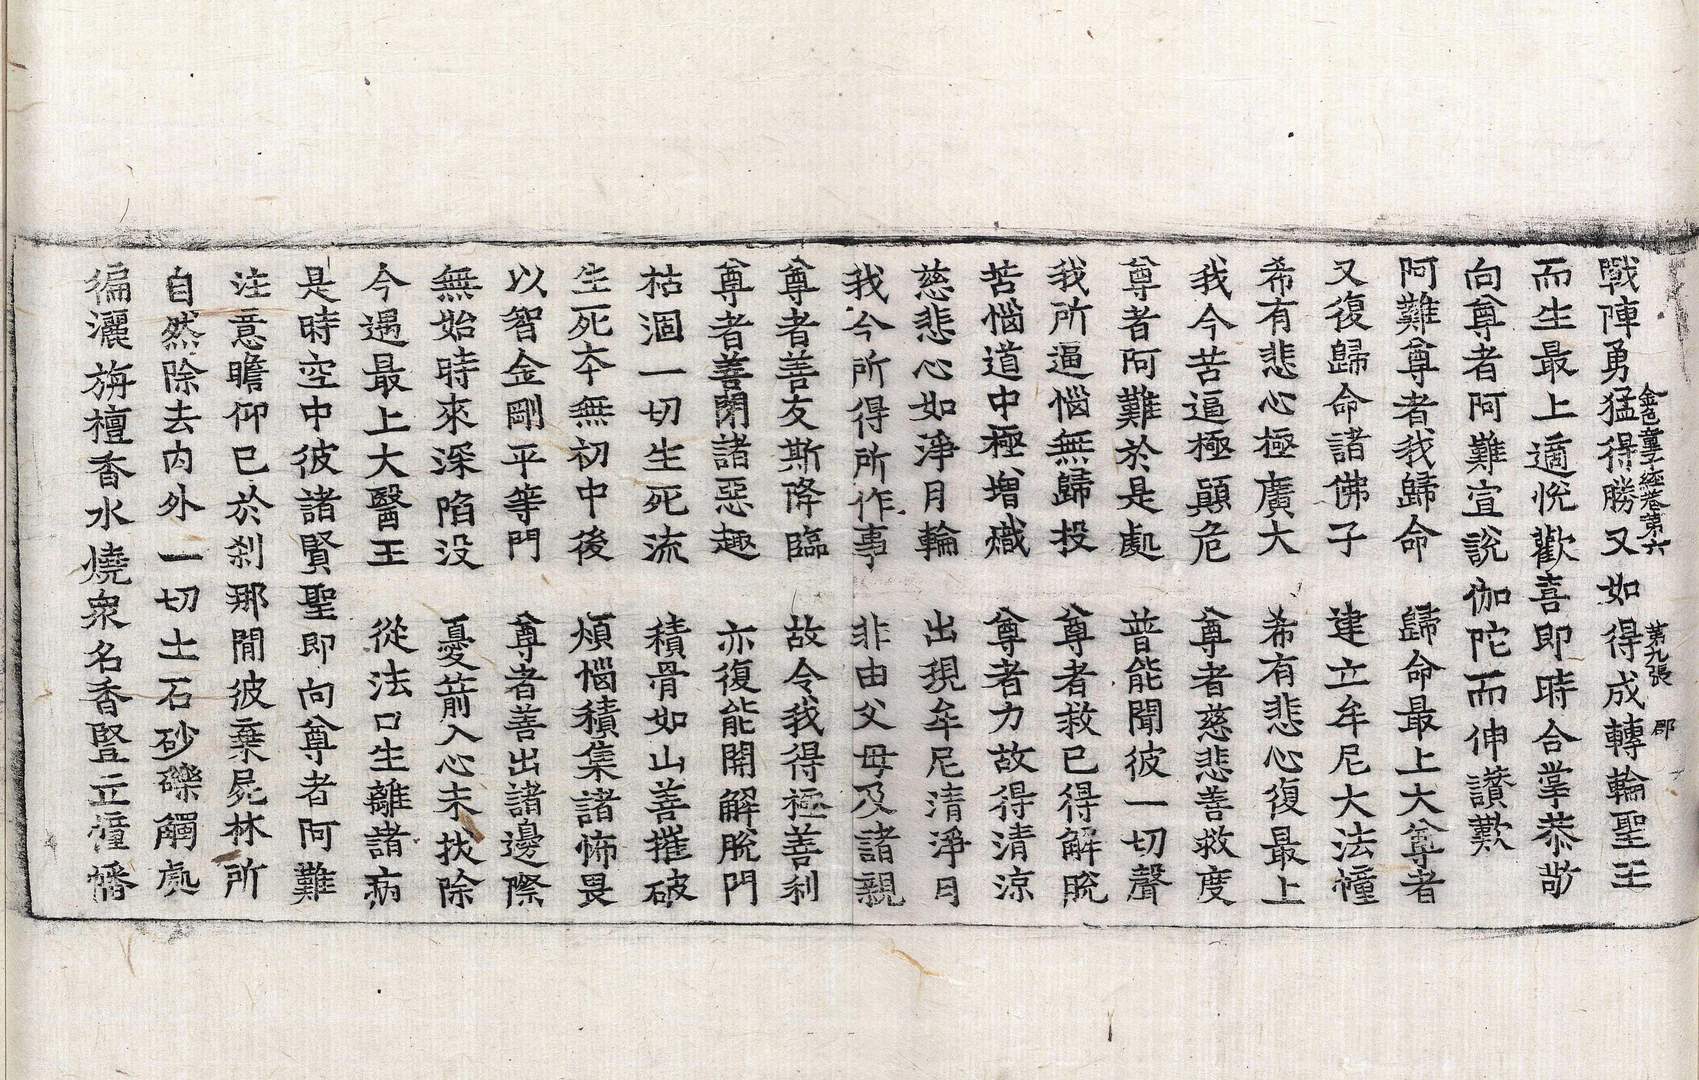 金色童子經卷第六　第九張　郡
戰陣勇猛得勝又如得成轉輪聖王
而生最上適悅歡喜即時合掌恭敬
向尊者阿難宣說伽陀而伸讃歎
阿難尊者我歸命　歸命最上大尊者
又復歸命諸佛子　建立牟尼大法幢
希有悲心極廣大　希有悲心復最上
我今苦逼極顚危　尊者慈悲善救度
尊者阿難於是處　普能聞彼一切聲
我所逼惱無歸投　尊者救已得解脫
苦惱道中極增熾　尊者力故得清涼
慈悲心如淨月輪　出現牟尼清淨日
我今所得所作事　非由父母及諸親
尊者善友斯降臨　故令我得極善利
尊者善閉諸惡趣　亦復能開解脫門
枯涸一切生死流　積骨如山善摧破
生死夲無初中後　煩惱積集諸怖畏
以智金剛平等門　尊者善出諸邊際
無始時來深陷没　憂箭入心未拔除
今遇最上大醫王　從法口生離諸病
是時空中彼諸賢聖即向尊者阿難
注意瞻仰已於刹那間彼棄屍林所
自然除去內外一切土石砂礫觸處
徧灑旃檀香水燒衆名香豎立幢幡